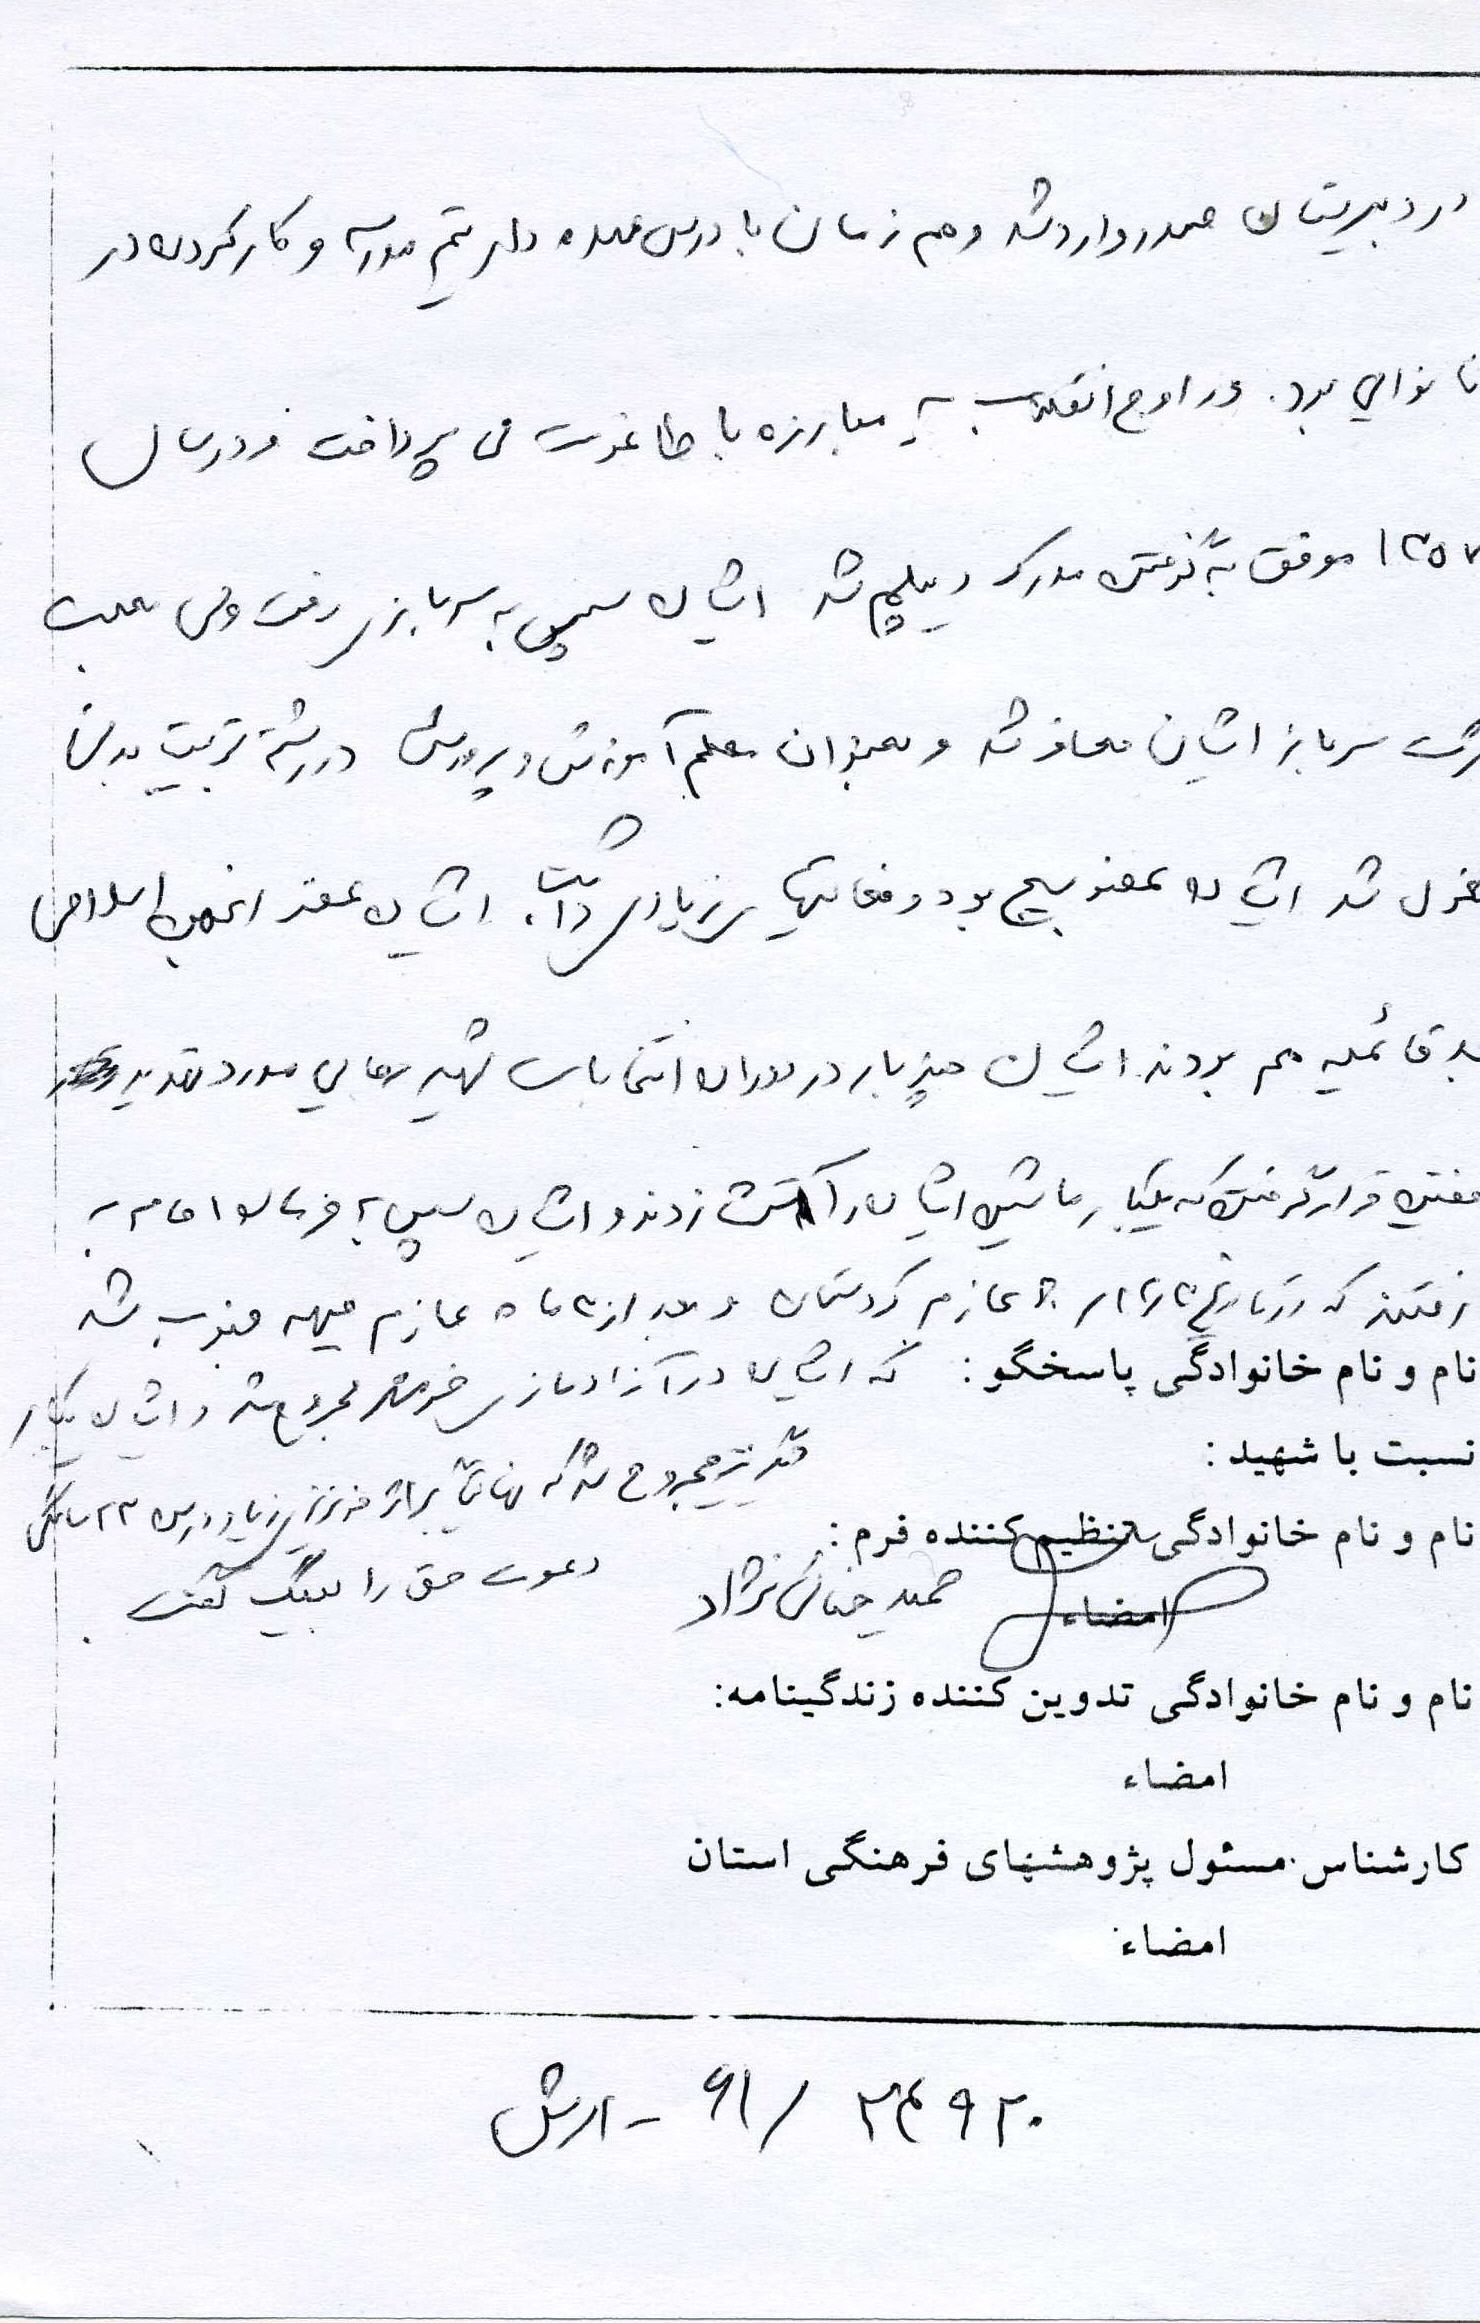 در دبیرستان صدر وارد شد و هم زمان با درس عهده دار تیم مدرسه و کار کردن در
نانوایی بود. در اوج انقلاب به مبارزه با طاغوت می پرداخت و در سال
۱۳۵۷ موفق به گرفتن مدرک دیپلم شد ایشان سپس به سربازی رفت ولی بعلت
سرباز ایشان معاف شد و بعنوان معلم آموزش و پرورش در رشته تربیت بدنی
شد ایشان عضو بسیج بود و فعالیتهای زیادی داشت. ایشان عضو انجمن اسلامی
قائمیه هم بودند ایشان چند بار در دوران انتخابات شهید رجایی مورد تهدید
قرار گرفتن که یکبار ماشین ایشان را آتش زدند و ایشان سپس به فرمان امام به
رفتند که در تاریخ عازم کردستان و بعد از ۳ ماه عازم جبهه جنوب شد
نام و نام خانوادگی پاسخگو: که ایشان در آزادسازی خرمشهر مجروح شد و ایشان یکبار
نسبت با شهید: مجروح شد که بر اثر خونریزی زیاد در سن ۲۳ سالگی
نام و نام خانوادگی تنظیم کننده فرم: دعوت حق را لبیک گفت.
امضاء حمید نژاد
نام و نام خانوادگی تدوین کننده زندگینامه:
امضاء
کارشناس مسئول پژوهشهای فرهنگی استان
امضاء
۶۱/۲۴۹۲۰ - ارش